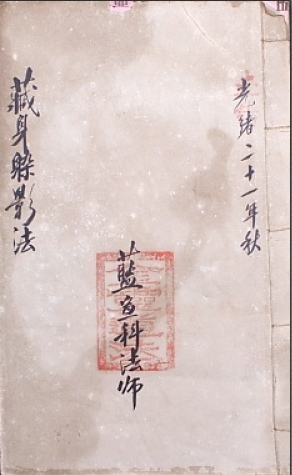 光緒二十一年秋
藍科法师
藏身躲影法